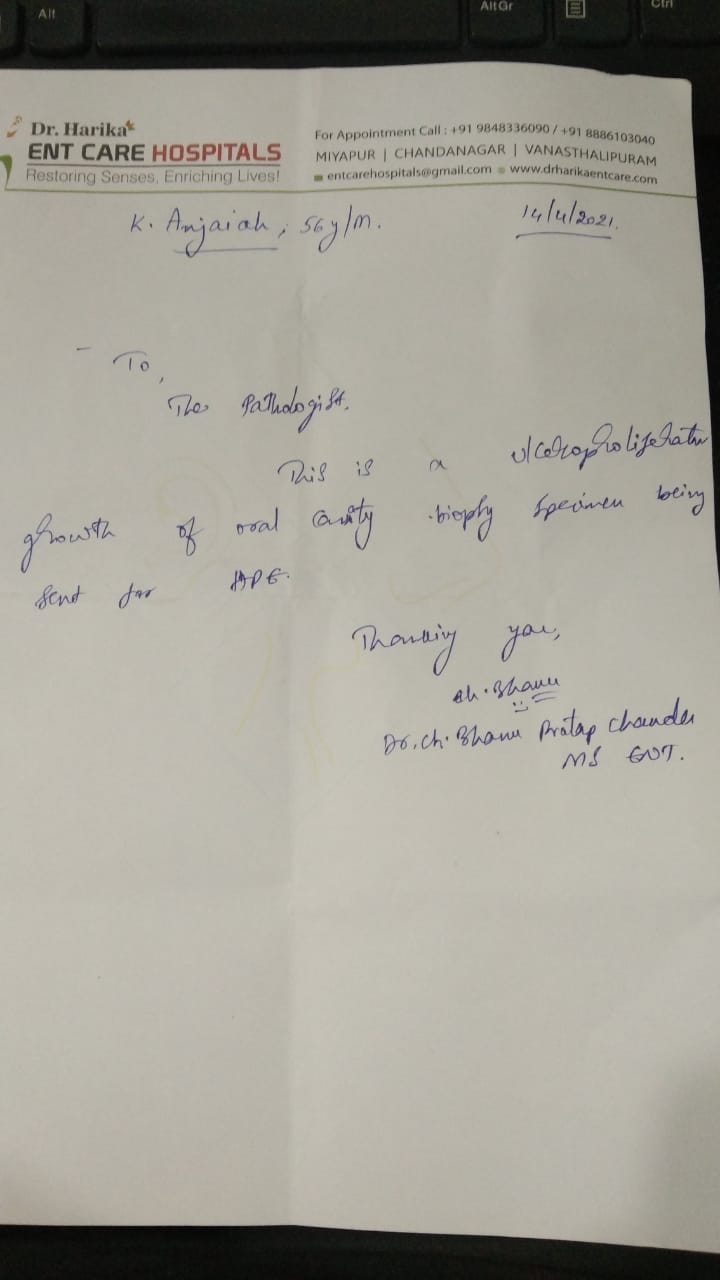 Alt
AltGr
Ctrl
Dr. Harika
ENT CARE HOSPITALS
Restoring Senses, Enriching Lives!
For Appointment Call : +91 9848336090 / +91 8886103040
MIYAPUR | CHANDANAGAR | VANASTHALIPURAM
entcarehospitals@gmail.com www.drharikaentcare.com
K. Anjaiah, 56y/m.
14/4/2021.
To,
The Pathologist.
This is a ulceroproliferative
growth of oral cavity biopsy specimen being
sent for HPE.
Thanking you,
Ch. Bhanu
Dr. Ch. Bhanu Pratap Chander
MS ENT.